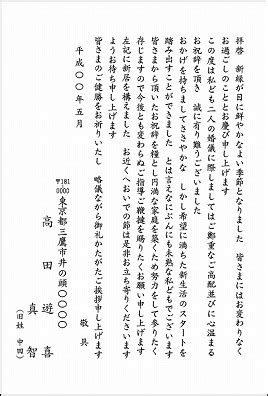 拝啓　新緑が日に鮮やかなよい季節となりました　皆さまにはお変わりなく
お過ごしのこととお慶び申し上げます
この度は私ども二人の婚儀に際しましてはご鄭重なご高配並びに心温まる
お祝辞を頂き　誠に有り難うございました
おかげを持ちましてささやかな　しかし希望に満ちた新生活のスタートを
踏み出すことができました　とは言えなにぶんにも未熟な私どもでございます
皆さまから頂いたお祝辞を糧とし円満な家庭を築くため努力をして参りたく
存じますので今後とも変わらぬご指導ご鞭撻を賜りたくお願い申し上げます
左記に新居を構えました　お近くへおいでの節は是非お立ち寄りくださいます
ようお待ち申し上げます
皆さまのご健勝をお祈りいたし　略儀ながら御礼かたがたご挨拶申し上げます
敬具
平成〇〇年五月
〒181
0000
東京都三鷹市井の頭〇〇〇〇
高田遊喜
真智
（旧姓　中田）